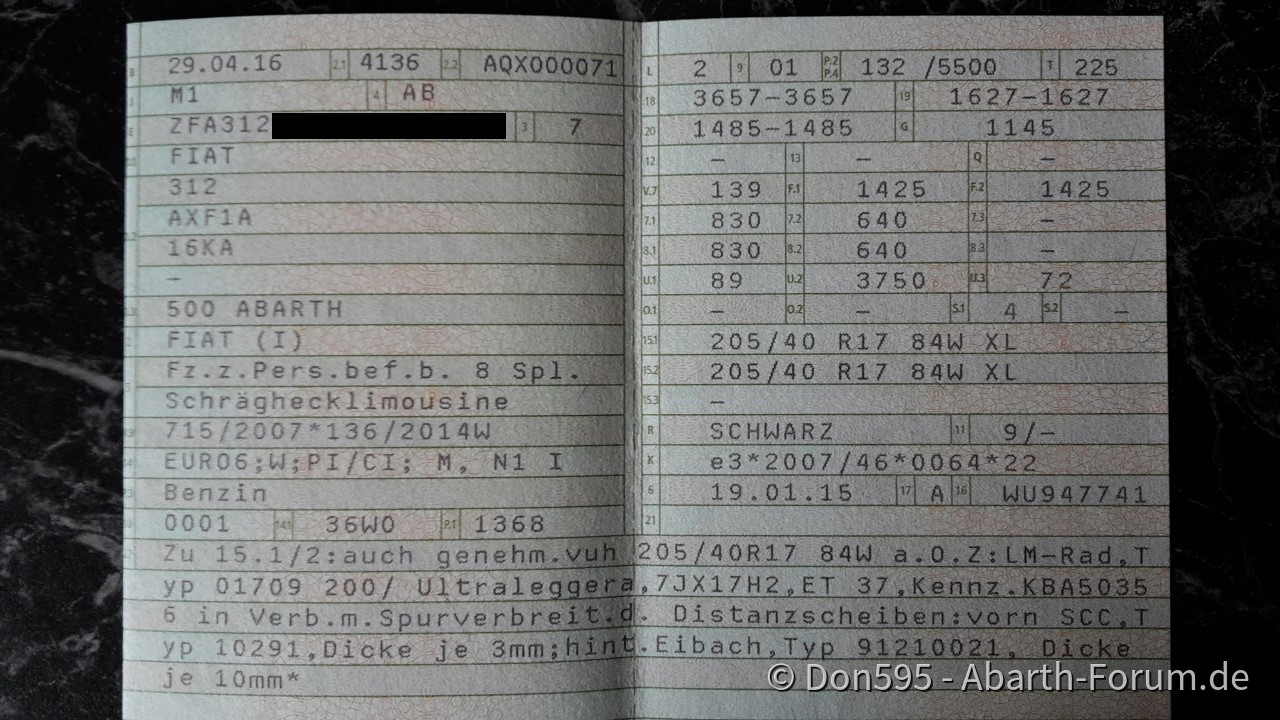 B 29.04.16 2.1 4136 2.2 AQX000071 L 2 9 01 P.2 P.4 132 /5500 T 225
J M1 4 AB 18 3657-3657 19 1627-1627
E ZFA312 3 7 20 1485-1485 G 1145
FIAT 12 - 13 - Q -
312 V.7 139 F.1 1425 F.2 1425
AXF1A 7.1 830 7.2 640 7.3 -
16KA 8.1 830 8.2 640 8.3 -
- U.1 89 U.2 3750 U.3 72
500 ABARTH O.1 - O.2 - S.1 4 S.2 -
FIAT (I) 15.1 205/40 R17 84W XL
Fz.z.Pers.bef.b. 8 Spl. 15.2 205/40 R17 84W XL
Schräghecklimousine 15.3 -
715/2007*136/2014W R SCHWARZ 11 9/-
EURO6;W;PI/CI; M, N1 I K e3*2007/46*0064*22
Benzin 6 19.01.15 17 A 16 WU947741
0001 14.1 36W0 P.1 1368 21
Zu 15.1/2:auch genehm.vuh 205/40R17 84W a.O.Z:LM-Rad,T
yp 01709 200/ Ultraleggera,7JX17H2,ET 37,Kennz.KBA5035
6 in Verb.m.Spurverbreit.d. Distanzscheiben:vorn SCC,T
yp 10291,Dicke je 3mm;hint.Eibach,Typ 91210021, Dicke
je 10mm*
© Don595 - Abarth-Forum.de